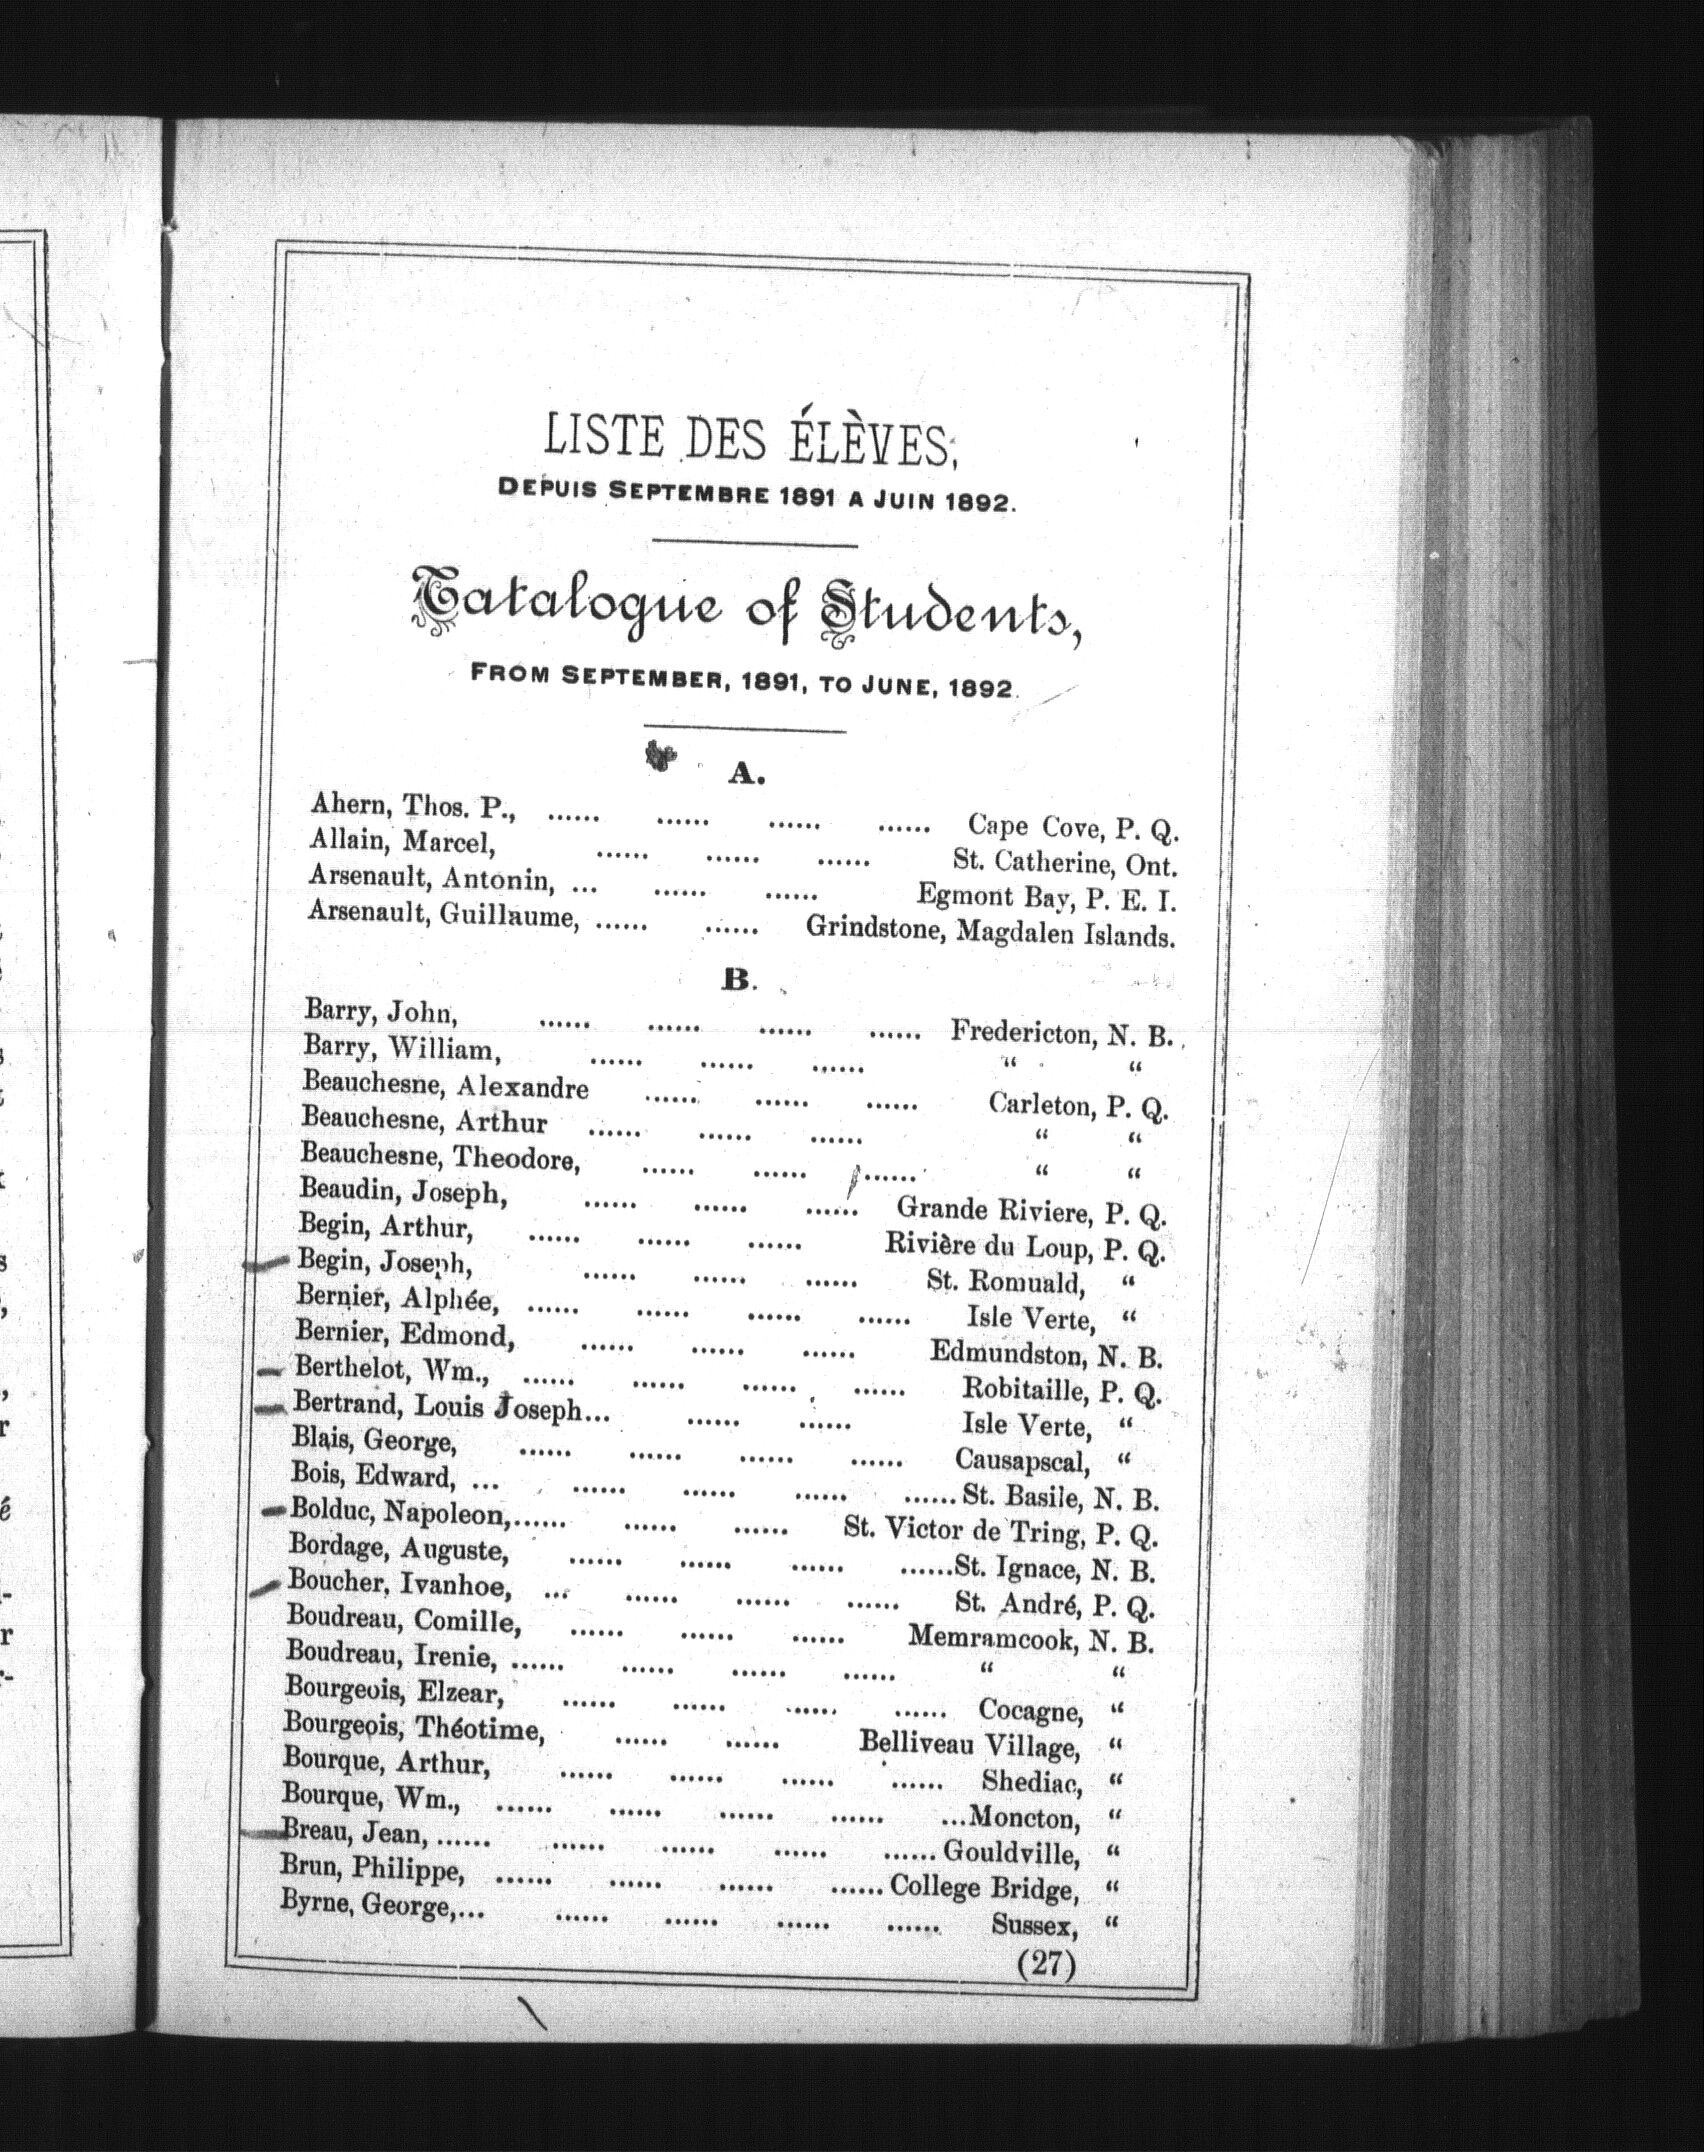 LISTE DES ÉLÈVES,
DEPUIS SEPTEMBRE 1891 A JUIN 1892.
Catalogue of Students,
FROM SEPTEMBER, 1891, TO JUNE, 1892.
A.
Ahern, Thos. P., ...... ...... ...... ...... Cape Cove, P. Q.
Allain, Marcel, ...... ...... ...... St. Catherine, Ont.
Arsenault, Antonin, ... ...... ...... Egmont Bay, P. E. I.
Arsenault, Guillaume, ...... ...... Grindstone, Magdalen Islands.
B.
Barry, John, ...... ...... ...... ...... Fredericton, N. B.
Barry, William, ...... ...... ...... “ “
Beauchesne, Alexandre ...... ...... ...... Carleton, P. Q.
Beauchesne, Arthur ...... ...... ...... “ “
Beauchesne, Theodore, ...... ...... ...... “ “
Beaudin, Joseph, ...... ...... ...... Grande Riviere, P. Q.
Begin, Arthur, ...... ...... ...... Rivière du Loup, P. Q.
Begin, Joseph, ...... ...... ...... St. Romuald, “
Bernier, Alphée, ...... ...... ...... ...... Isle Verte, “
Bernier, Edmond, ...... ...... ...... Edmundston, N. B.
Berthelot, Wm., ...... ...... ...... ...... Robitaille, P. Q.
Bertrand, Louis Joseph... ...... ...... Isle Verte, “
Blais, George, ...... ...... ...... ...... Causapscal, “
Bois, Edward, ... ...... ...... ...... ...... St. Basile, N. B.
Bolduc, Napoleon,...... ...... ...... St. Victor de Tring, P. Q.
Bordage, Auguste, ...... ...... ...... ......St. Ignace, N. B.
Boucher, Ivanhoe, ... ...... ...... ...... St. André, P. Q.
Boudreau, Comille, ...... ...... ...... Memramcook, N. B.
Boudreau, Irenie, ...... ...... ...... ...... “ “
Bourgeois, Elzear, ...... ...... ...... ...... Cocagne, “
Bourgeois, Théotime, ...... ...... Belliveau Village, “
Bourque, Arthur, ...... ...... ...... ...... Shediac, “
Bourque, Wm., ...... ...... ...... ...... ...Moncton, “
Breau, Jean, ...... ...... ...... ...... ...... Gouldville, “
Brun, Philippe, ...... ...... ...... ...... College Bridge, “
Byrne, George,... ...... ...... ...... ...... Sussex, “
(27)